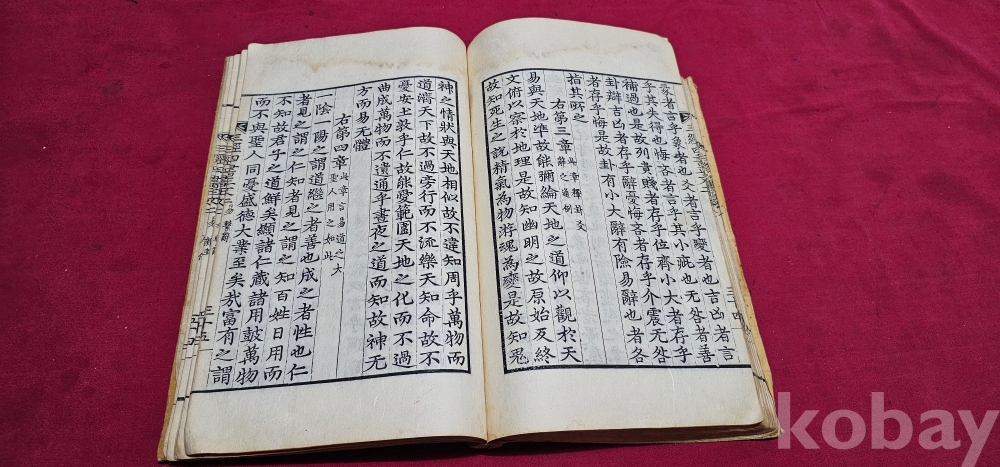 彖者言乎象者也爻者言乎變者也吉凶者言
乎其失得也悔吝者言乎其小疵也无咎者善
補過也是故列貴賤者存乎位齊小大者存乎
卦辯吉凶者存乎辭憂悔吝者存乎介震无咎
者存乎悔是故卦有小大辭有險易辭也者各
指其所之
右第三章 此章釋卦爻
辭之通例
易與天地準故能彌綸天地之道仰以觀於天
文俯以察於地理是故知幽明之故原始反終
故知死生之說精氣為物游魂為變是故知鬼
神之情狀與天地相似故不違知周乎萬物而
道濟天下故不過旁行而不流樂天知命故不
憂安土敦乎仁故能愛範圍天地之化而不過
曲成萬物而不遺通乎晝夜之道而知故神无
方而易无體
右第四章 此章言易道之大
聖人用之如此
一陰一陽之謂道繼之者善也成之者性也仁
者見之謂之仁知者見之謂之知百姓日用而
不知故君子之道鮮矣顯諸仁藏諸用鼓萬物
而不與聖人同憂盛德大業至矣哉富有之謂
三十五
kobay